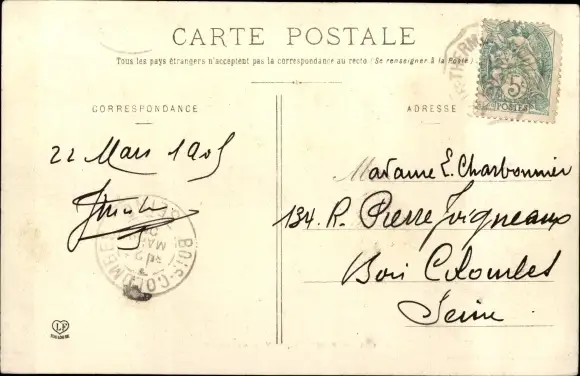 CARTE POSTALE
Tous les pays étrangers n'acceptent pas la correspondance au recto (Se renseigner à la Poste)
CORRESPONDANCE
ADRESSE
22 Mars 1905
Madame E. Charbonnier
134. R. Pierre Joigneaux
Bois Colombes
Seine
BOIS-COLOMBES
5c
POSTES
LF